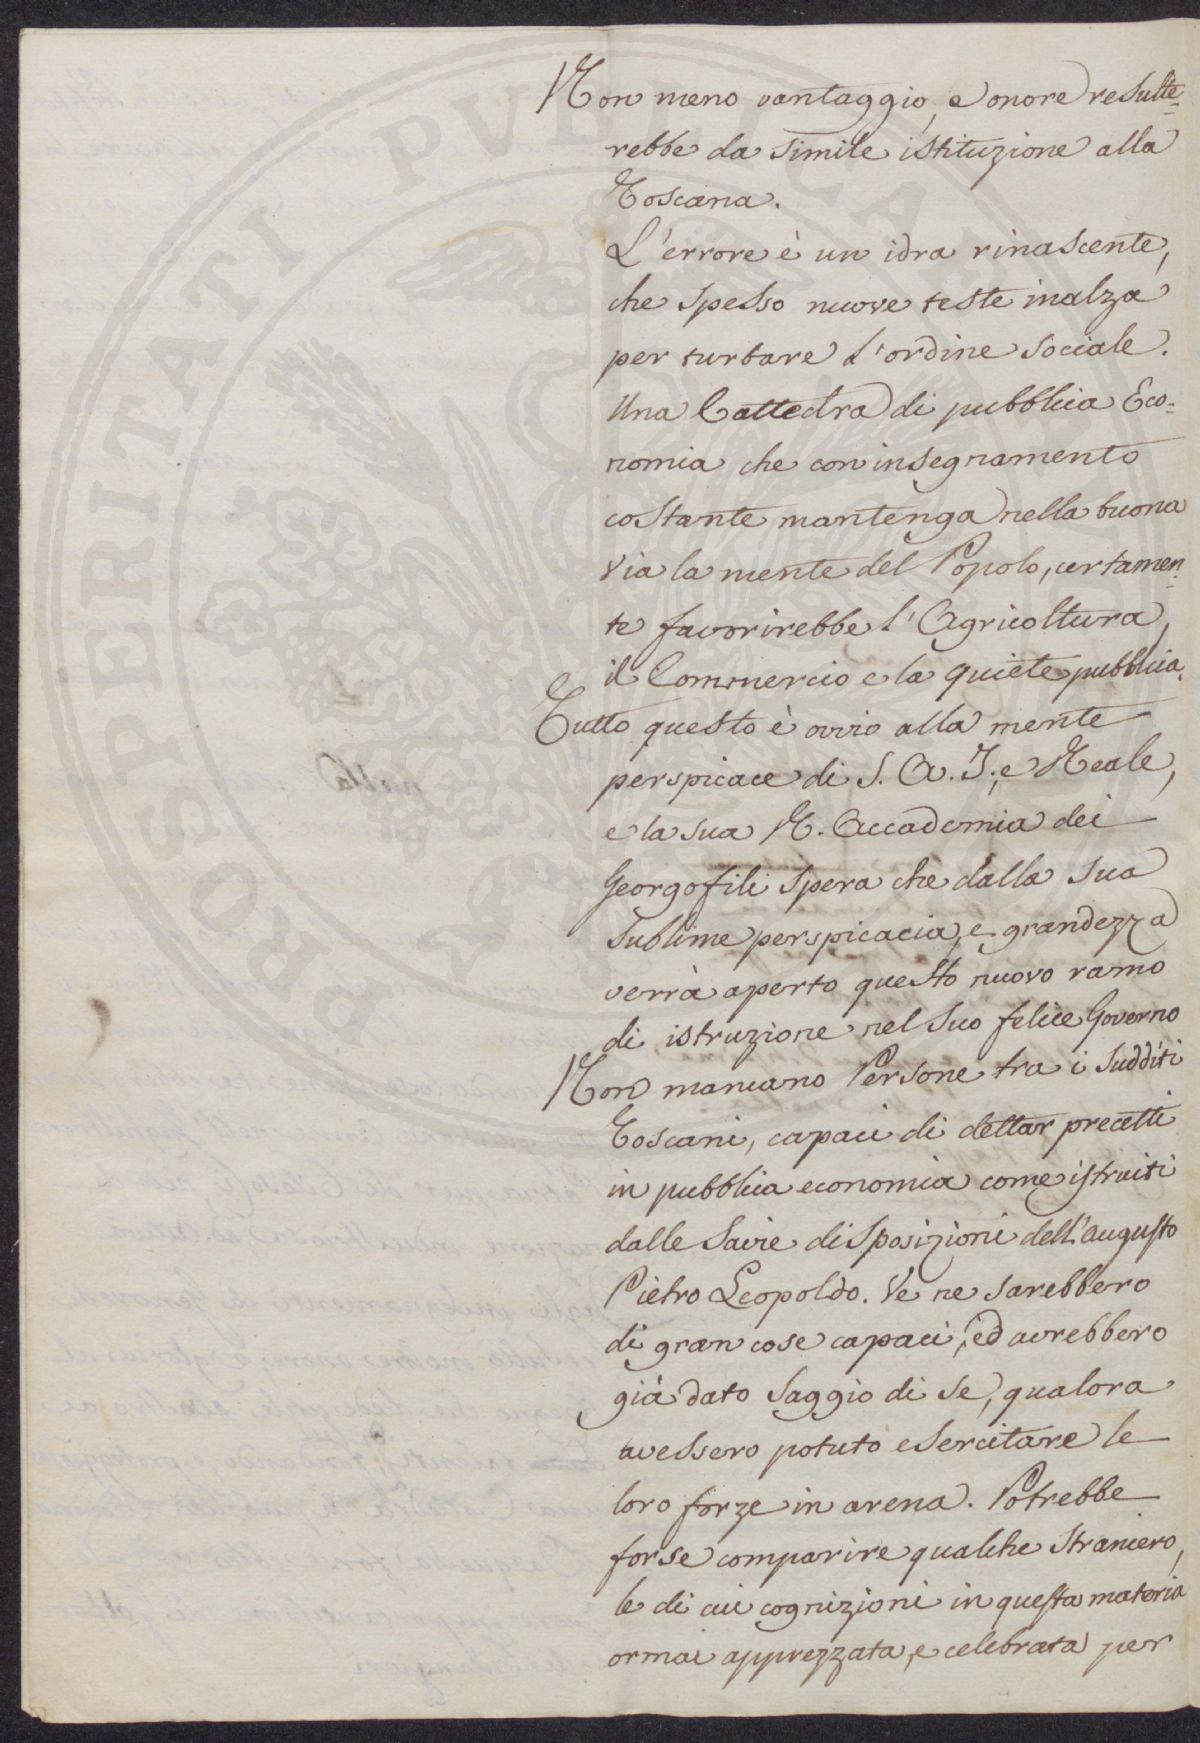 Non meno vantaggio, e onore resulte=
rebbe da simile istituzione alla
Toscana.
L'errore è un idra rinascente,
che spesso nuove teste inalza
per turbare l'ordine sociale.
Una Cattedra di pubblica Eco=
nomia che con insegnamento
costante mantenga nella buona
via la mente del Popolo, certamen=
te favorirebbe l'Agricoltura,
il Commercio e la quiete pubblica.
Tutto questo è ovvio alla mente
perspicace di S. A. I. e Reale,
e la sua R. Accademia dei
Georgofili spera che dalla sua
sublime perspicacia, e grandezza
verrà aperto questo nuovo ramo
di istruzione nel suo felice Governo
Non mancano Persone tra i sudditi
Toscani, capaci di dettar precetti
in pubblica economia come istruiti
dalle savie disposizioni dell'augusto
Pietro Leopoldo. Ve ne sarebbero
di gran cose capaci, ed avrebbero
già dato saggio di se, qualora
avessero potuto esercitare le
loro forze in arena. Potrebbe
forse comparire qualche straniero,
le di cui cognizioni in questa materia
ormai apprezzata, e celebrata per
PROSPERITATI PVBLICAE